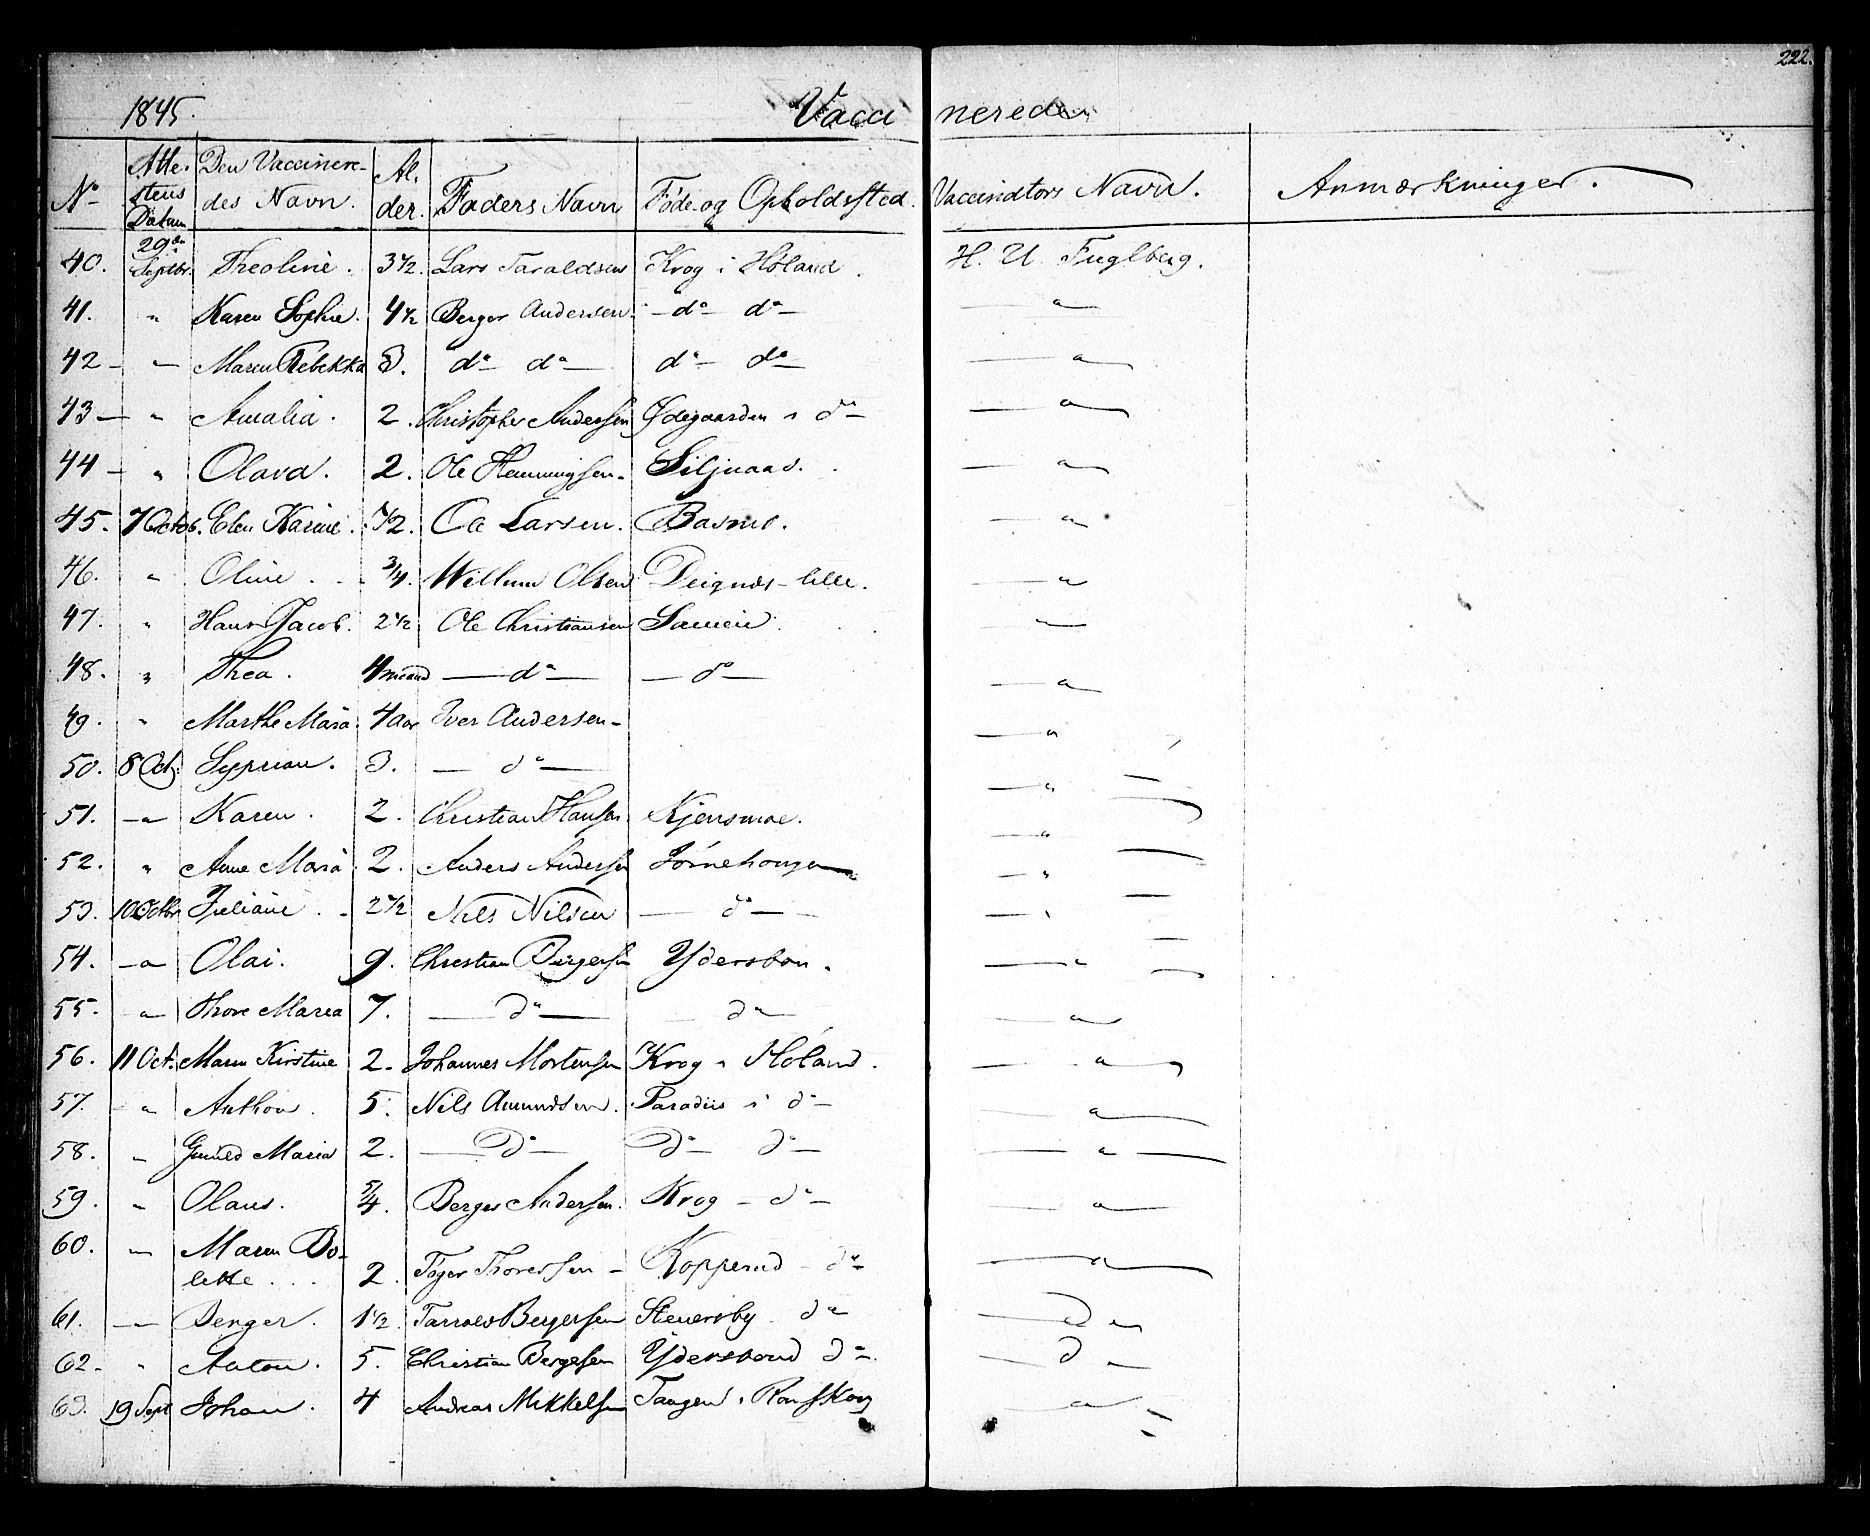 222.
1845. Vacci nerede
No Attestens Datum Den Vaccinere-des Navn. Al-der. Faders Navn Føde og Opholdsted. Vaccinators Navn. Anmærkninger.
40. 29de Septbr. Theoline. 3 1/2. Lars Taraldsen Krog i Høland. H. U. Fuglberg.
41. " Karen Sophie. 4 1/2 Berger Andersen. do do "
42 " Maren Rebekka 3. do do do do "
43 " Amalia. 2. Christopher Andersen Ødegaarden i do "
44 " Olava. 2. Ole Hemmingsen. Siljuaas. "
45. 7 Octob. Elen Karine. 1/2. Ole Larsen. Basmo. "
46. " Oline. 3/4. Willum Olsen lille. "
47. " Hans Jacob. 2 1/2 Ole Christiansen "
48. " Thea. 4 maand do do "
49. " Marthe Maria. 4 aar Iver Andersen "
50. 8 Oct. Syprian. 3. do "
51. " Karen. 2. Christian Hansen Kjensmoe. "
52. " Anne Maria 2. Anders Andersen "
53. 10 Octbr Juliane. 2 1/2 Nils Nilsen do "
54. " Olai. 9. Christian Bergersen Ydersbon. "
55. " Thore Maria 7. do do "
56. 11 Oct. Maren Kirstine 2. Johannes Mortensen Krog i Høland. "
57. " Anthon. 5. Nils Amundsen. Paradiis i do "
58. " Gunild Maria 2. do do do "
59. " Olaus. 5/4. Berger Andersen. Krog do "
60. " Maren Bo-
lette. 2. Thoresen Kopperud do "
61. " Berger. 1 1/2. Tarald Bergersen do do
62. " Anton. 5. Christian Bergesen Ydersbond do do
63. 19 Sept Johan. 4 Andreas Mikkelsen Tangen i "